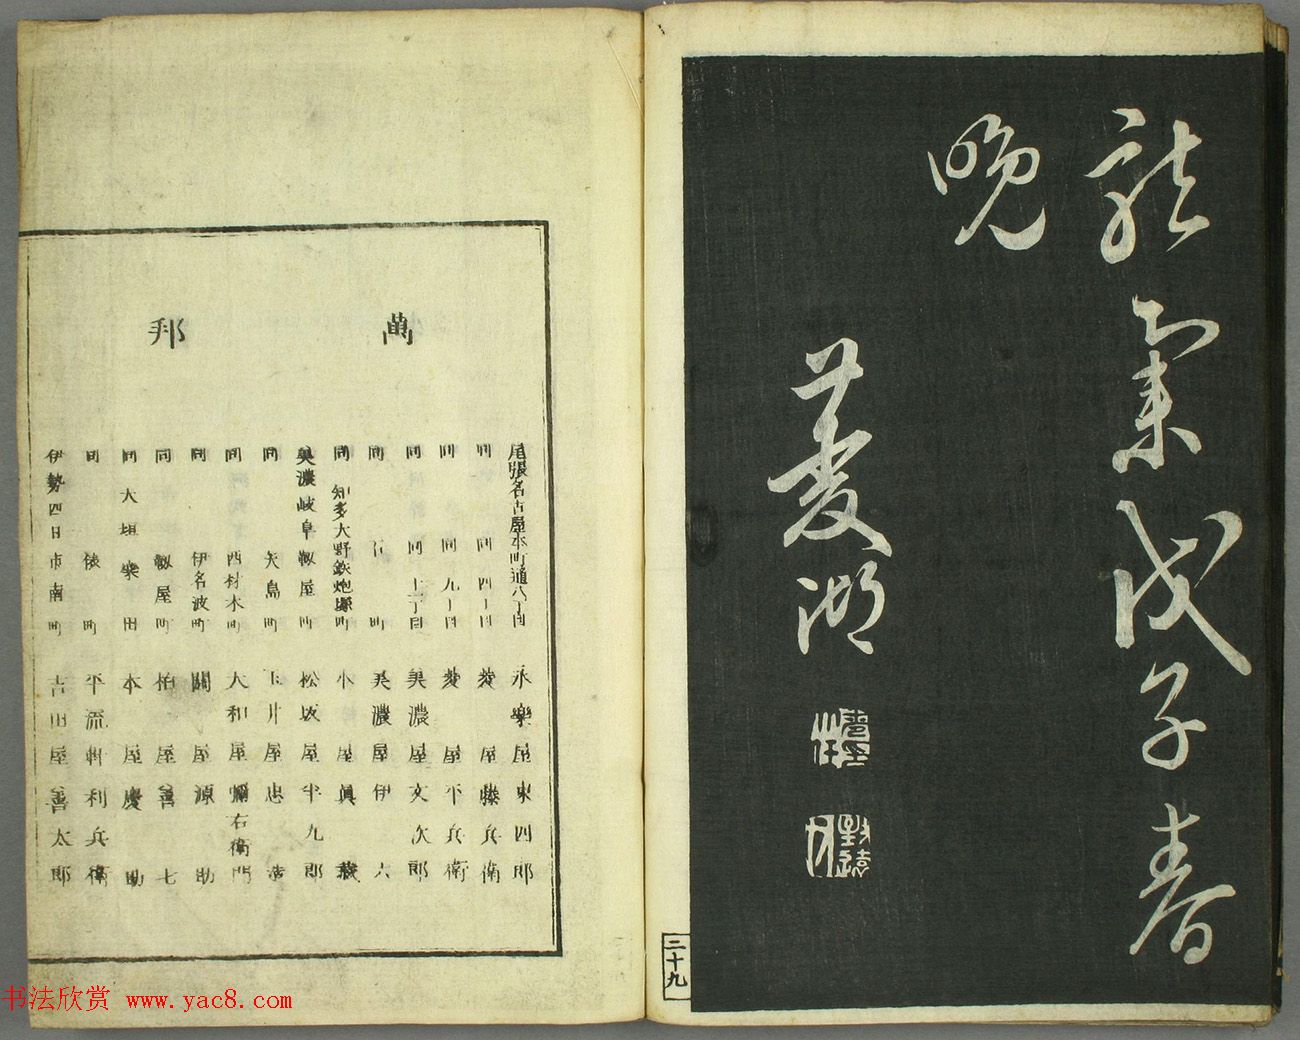 龍集戊子春
晩
菱湖
二十九
萬邦
尾張名古屋本町通八丁目 永樂屋東四郎
同 同四丁目 菱屋藤兵衛
同 同九丁目 菱屋平兵衛
同 同十一丁目 美濃屋文次郎
同 石町 美濃屋伊六
同 知多大野鉄炮塲町 小屋眞藏
美濃岐阜靱屋町 松坂屋半九郎
同 矢島町 玉井屋忠
同 西材木町 大和屋彌右衛門
同 伊名波町 關屋源助
同 靱屋町 柏屋善七
同大垣楽田 本屋慶助
同 俵町 平流軒利兵衛
伊勢四日市南町 吉田屋善太郎
书法欣赏 www.yac8.com